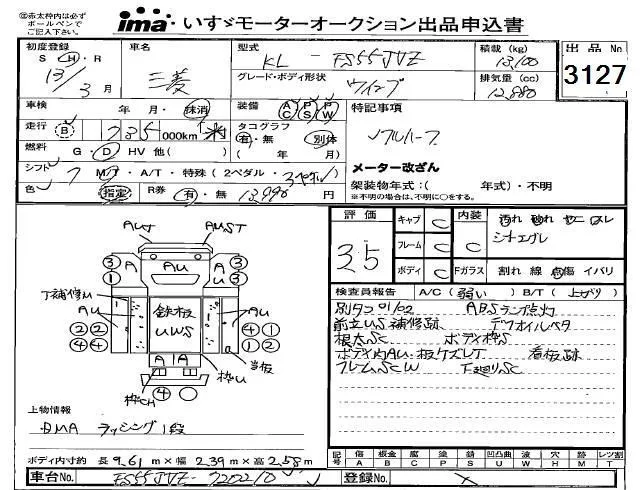 ㊟赤太枠内は必ず
ボールペンで
ご記入下さい。
ima いすゞモーターオークション出品申込書
初度登録 S・H・R 13年 3月
車名 三菱
型式 KL - FS55JVZ
積載 (kg) 13,100
出品No 3127
グレード・ボディ形状 ウイング
排気量 (cc) 12,880
車検 年・月・抹消
装備 AC PS PW
特記事項
走行 B 735 000km
タコグラフ 有・無 別体
( 年 月)
フルハーフ
燃料 G・D HV 他( )
メーター改ざん
シフト 7 MT・A/T・特殊(2ペダル・3ペダル)
架装物年式:( 年式)・不明
※不明の場合は、不明に○をする。
色 指定 R券 有・無 13,990 円
評価 3.5
キャブ C
内装 C
フレーム C
ボディ C
Fガラス 割れ 線 点傷 イバリ
シートエグレ
検査員報告 A/C (弱い) B/T (上がり)
別タコ01/02 ABSランプ点灯
前立US補修跡 デフオイルベタ
根太SC ボディ枠S
ボディ内AU・板ケズレT 看板跡
フレームSCW 下廻りSC
AUT AUST
③ A AU A ③
① ①
T補修U
AU 鉄板 UWS AU
②② ④①
④④ ①②
A A
④
枠CH 枠U 当板
上物情報
DMA ラッシング1段
ボディ内寸約 長 9.61 m×幅 2.39 m×高 2.58 m
記号 傷A 板金B 腐C 塗P 錆S 凹凸曲U 波W 穴H 跡M レツ割T
車台No. FS55JVZ-720210
登録No. ×